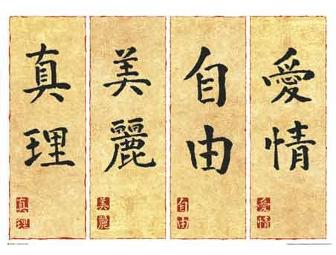 真理
美麗
自由
愛情
真理
美麗
自由
愛情